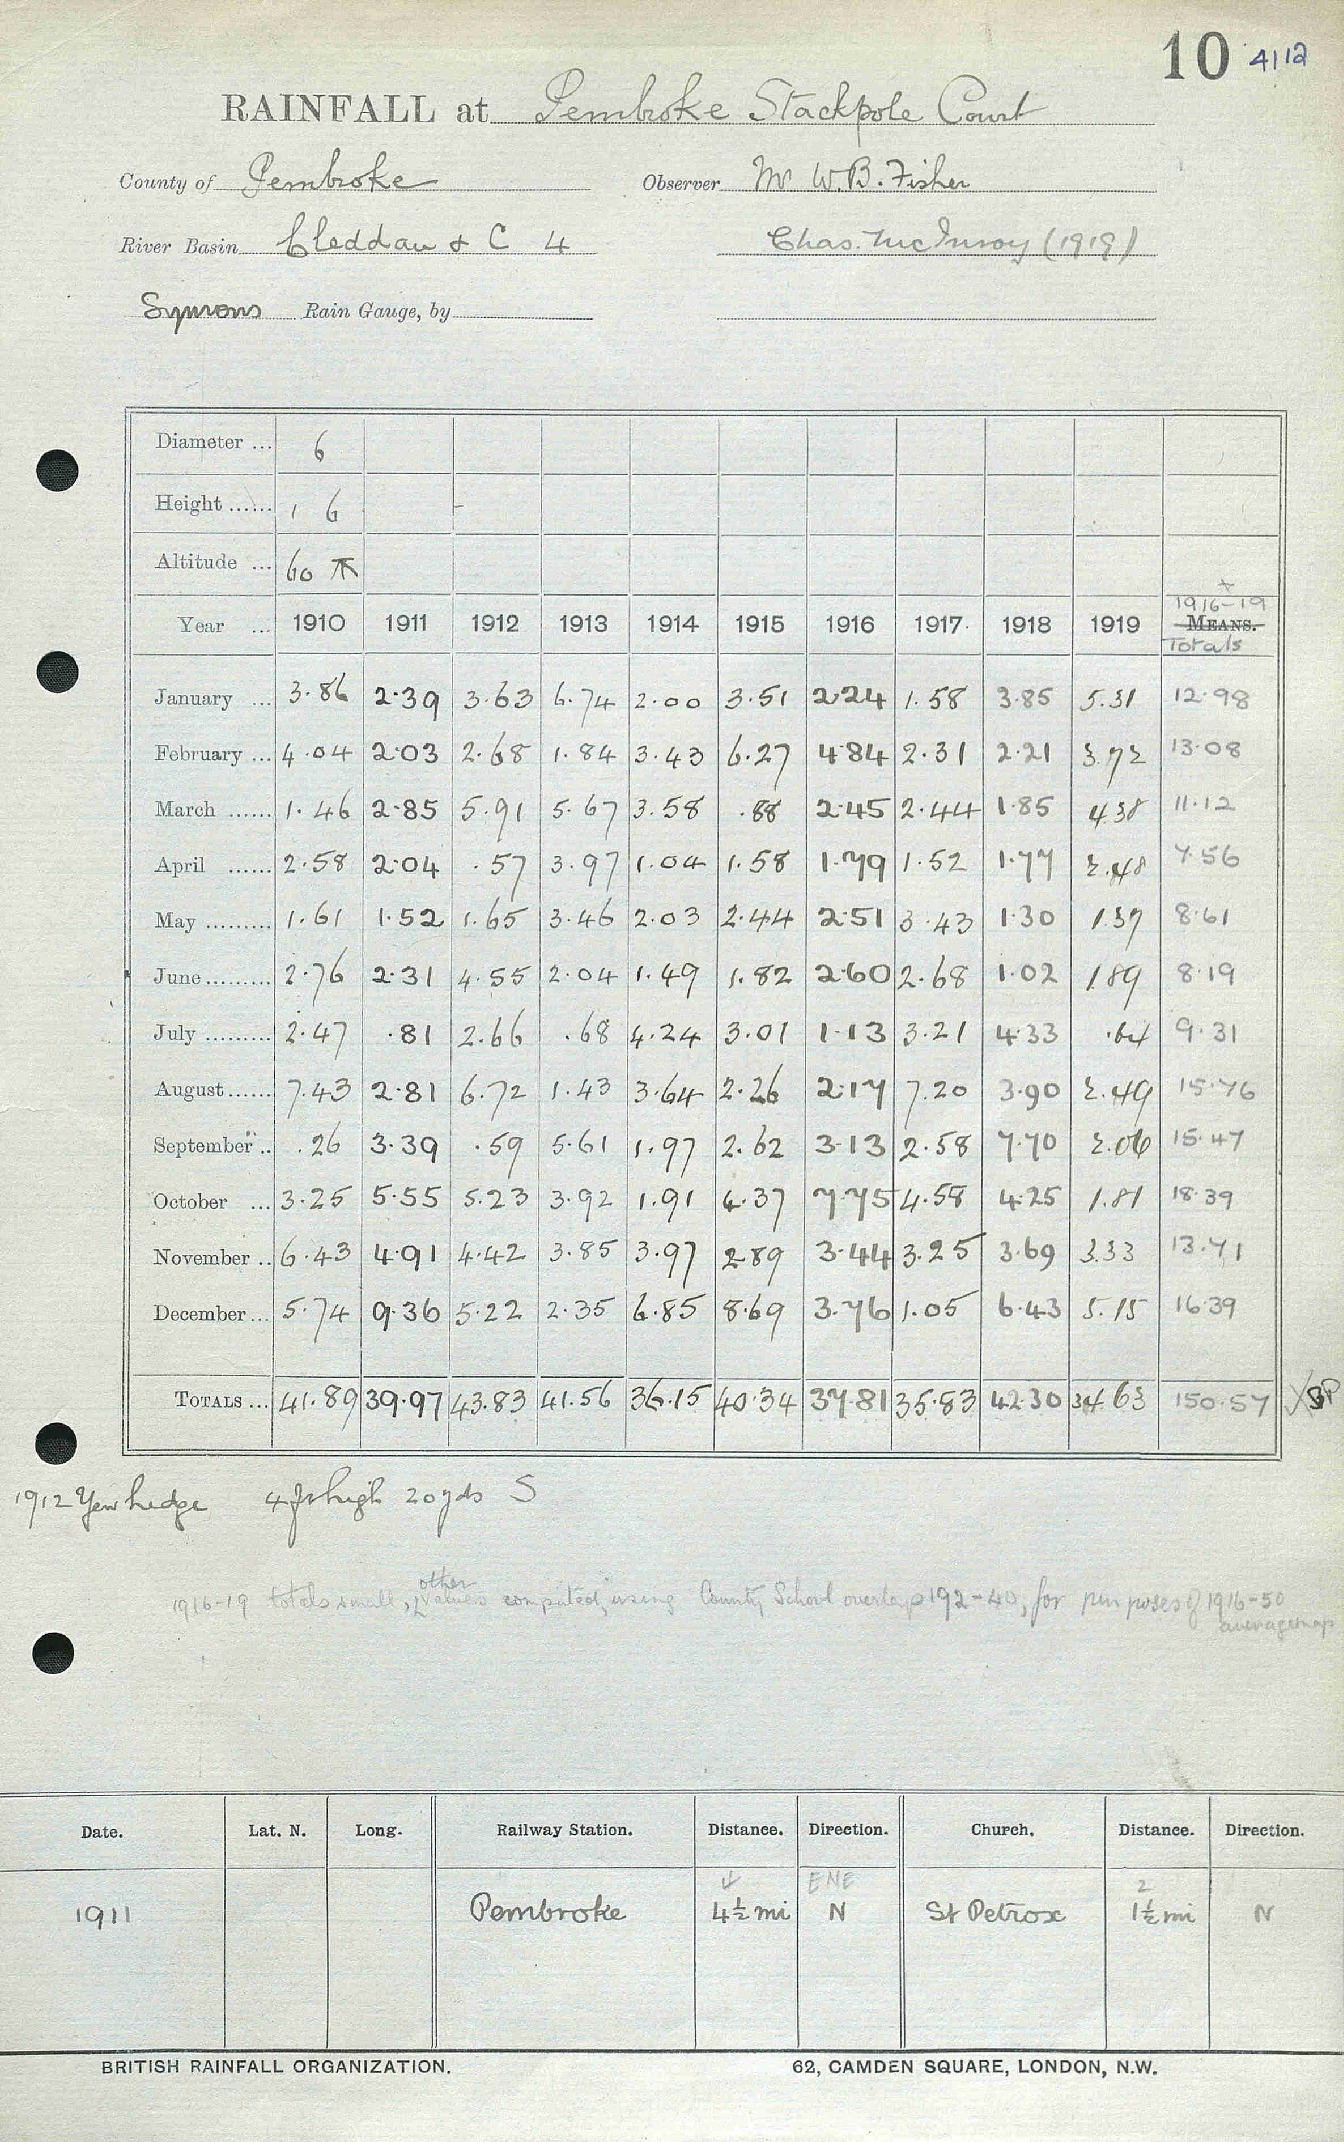 10 4112
RAINFALL at Pembroke Stackpole Court
County of Pembroke Observer Mr W.B. Fisher
River Basin Cleddau & C 4 Chas. McInroy (1919)
Symons Rain Gauge, by
Diameter ... 6
Height ...... 1 6
Altitude ... 60
1916-19
Year ... 1910 1911 1912 1913 1914 1915 1916 1917. 1918 1919 MEANS.
Totals
January ... 3.86 2.39 3.63 6.74 2.00 3.51 2.24 1.58 3.85 5.31 12.98
February ... 4.04 2.03 2.68 1.84 3.43 6.27 4.84 2.31 2.21 3.72 13.08
March ...... 1.46 2.85 5.91 5.67 3.58 .88 2.45 2.44 1.85 4.38 11.12
April ...... 2.58 2.04 .57 3.97 1.04 1.58 1.79 1.52 1.77 2.48 7.56
May ......... 1.61 1.52 1.65 3.46 2.03 2.44 2.51 3.43 1.30 1.37 8.61
June ......... 2.76 2.31 4.55 2.04 1.49 1.82 2.60 2.68 1.02 1.89 8.19
July ......... 2.47 .81 2.66 .68 4.24 3.01 1.13 3.21 4.33 .64 9.31
August ...... 7.43 2.81 6.72 1.43 3.64 2.26 2.17 7.20 3.90 2.49 15.76
September .. .26 3.39 .59 5.61 1.97 2.62 3.13 2.58 7.70 2.06 15.47
October ... 3.25 5.55 5.23 3.92 1.91 4.37 7.75 4.58 4.25 1.81 18.39
November .. 6.43 4.91 4.42 3.85 3.97 2.89 3.44 3.25 3.69 3.33 13.71
December ... 5.74 9.36 5.22 2.35 6.85 8.69 3.76 1.05 6.43 5.15 16.39
TOTALS ... 41.89 39.97 43.83 41.56 36.15 40.34 37.81 35.83 42.30 34.63 150.57
1912 Yew hedge 4 ft high 20 yds S
other
1916-19 totals small, values computed, using County School overlap 192-40, for purposes of 1916-50
average map
Date. Lat. N. Long. Railway Station. Distance. Direction. Church. Distance. Direction.
4 ENE 2
1911 Pembroke 4½ mi N St Petrox 1½ mi N
BRITISH RAINFALL ORGANIZATION. 62, CAMDEN SQUARE, LONDON, N.W.